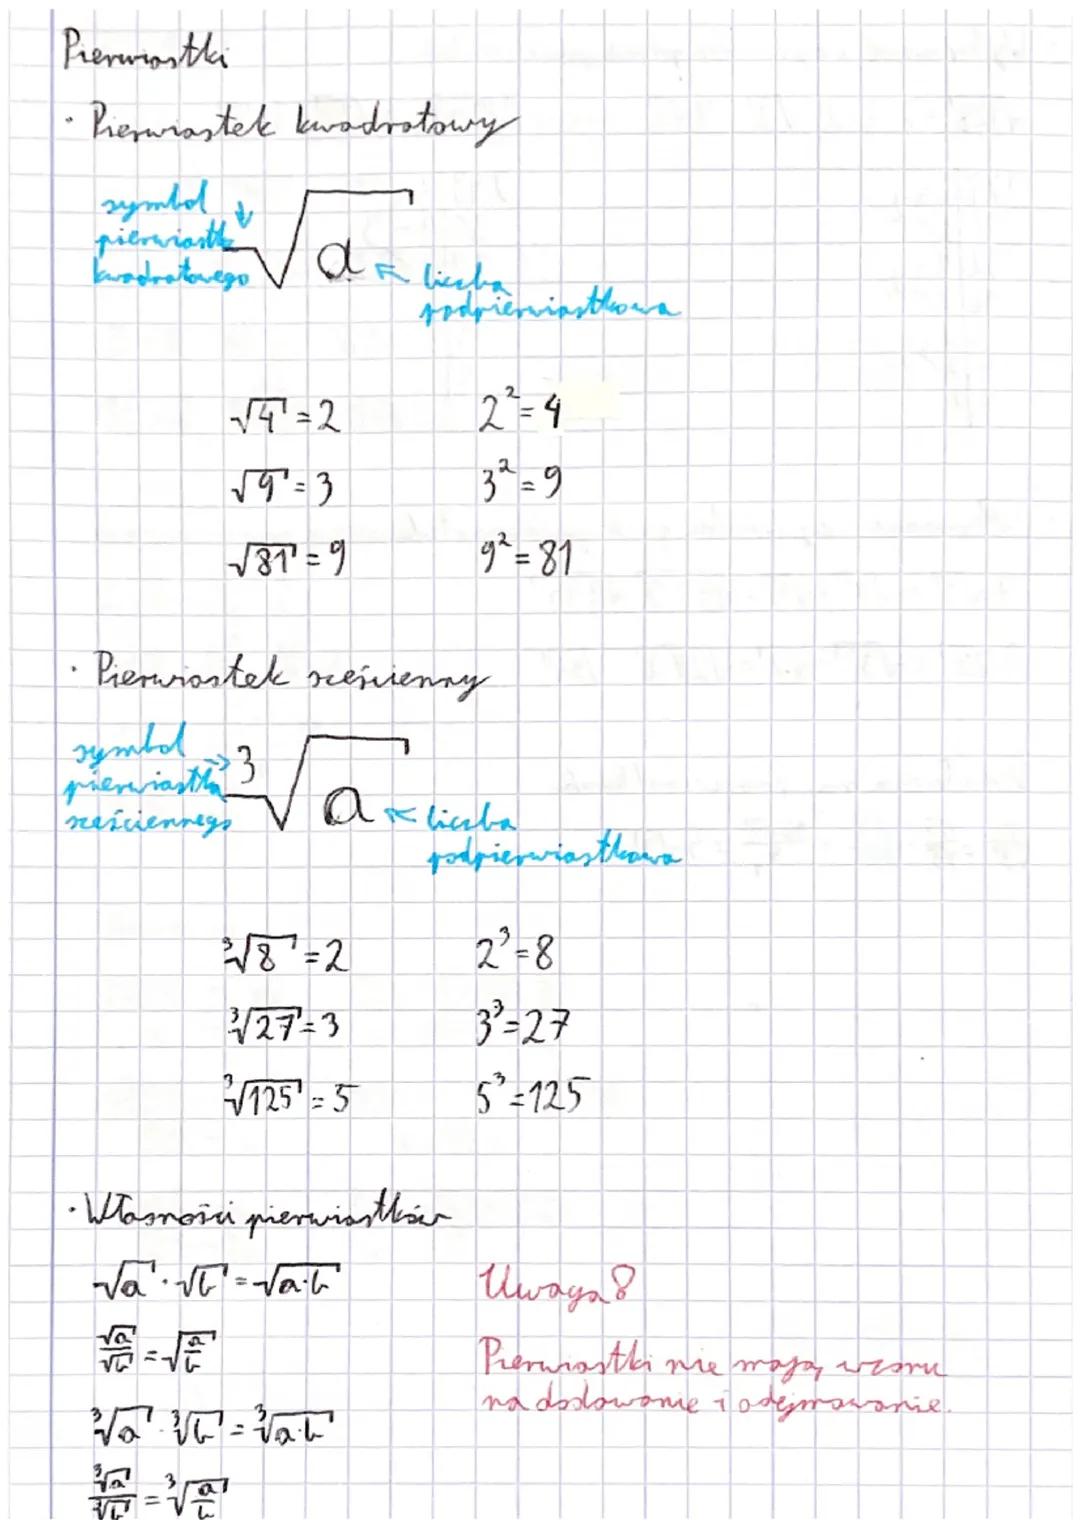 Pierwiastki
· Pierwiastek kwadratowy
symbol
pierwiastka
kwadratowego
√a
liczba
podpierwiastkowa
√4 = 2    2² = 4
√9 = 3    3² = 9
√81 = 9    9² = 81
· Pierwiastek sześcienny
symbol
pierwiastka
sześciennego
³√a
liczba
podpierwiastkowa
³√8 = 2    2³ = 8
³√27 = 3    3³ = 27
³√125 = 5    5³ = 125
· Własności pierwiastków
√a · √b = √a·b
√a/√b = √a/b
³√a · ³√b = ³√a·b
³√a/³√b = ³√a/b
Uwaga!
Pierwiastki nie mają wzoru
na dodowanie i odejmowanie.